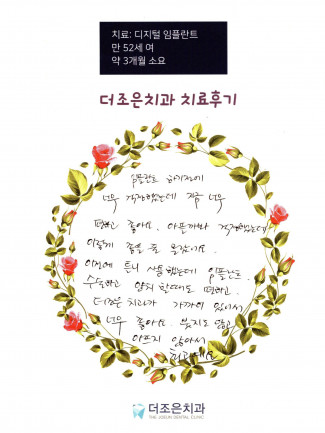 치료: 디지털 임플란트
만 52세 여
약 3개월 소요
더조은치과 치료후기
임플란트 하기전에
너무 걱정했는데 지금 너무
편하고 좋아요. 아플까봐 걱정했는데
이렇게 좋을 줄 몰랐네요.
이전에 틀니 사용했는데 임플란트
수술하고 양치 할때도 편하고.
더조은 치과가 가까이 있어서
너무 좋아요. 붓지도 않고
아프지 않아서
더조은치과
THE JOEUN DENTAL CLINIC